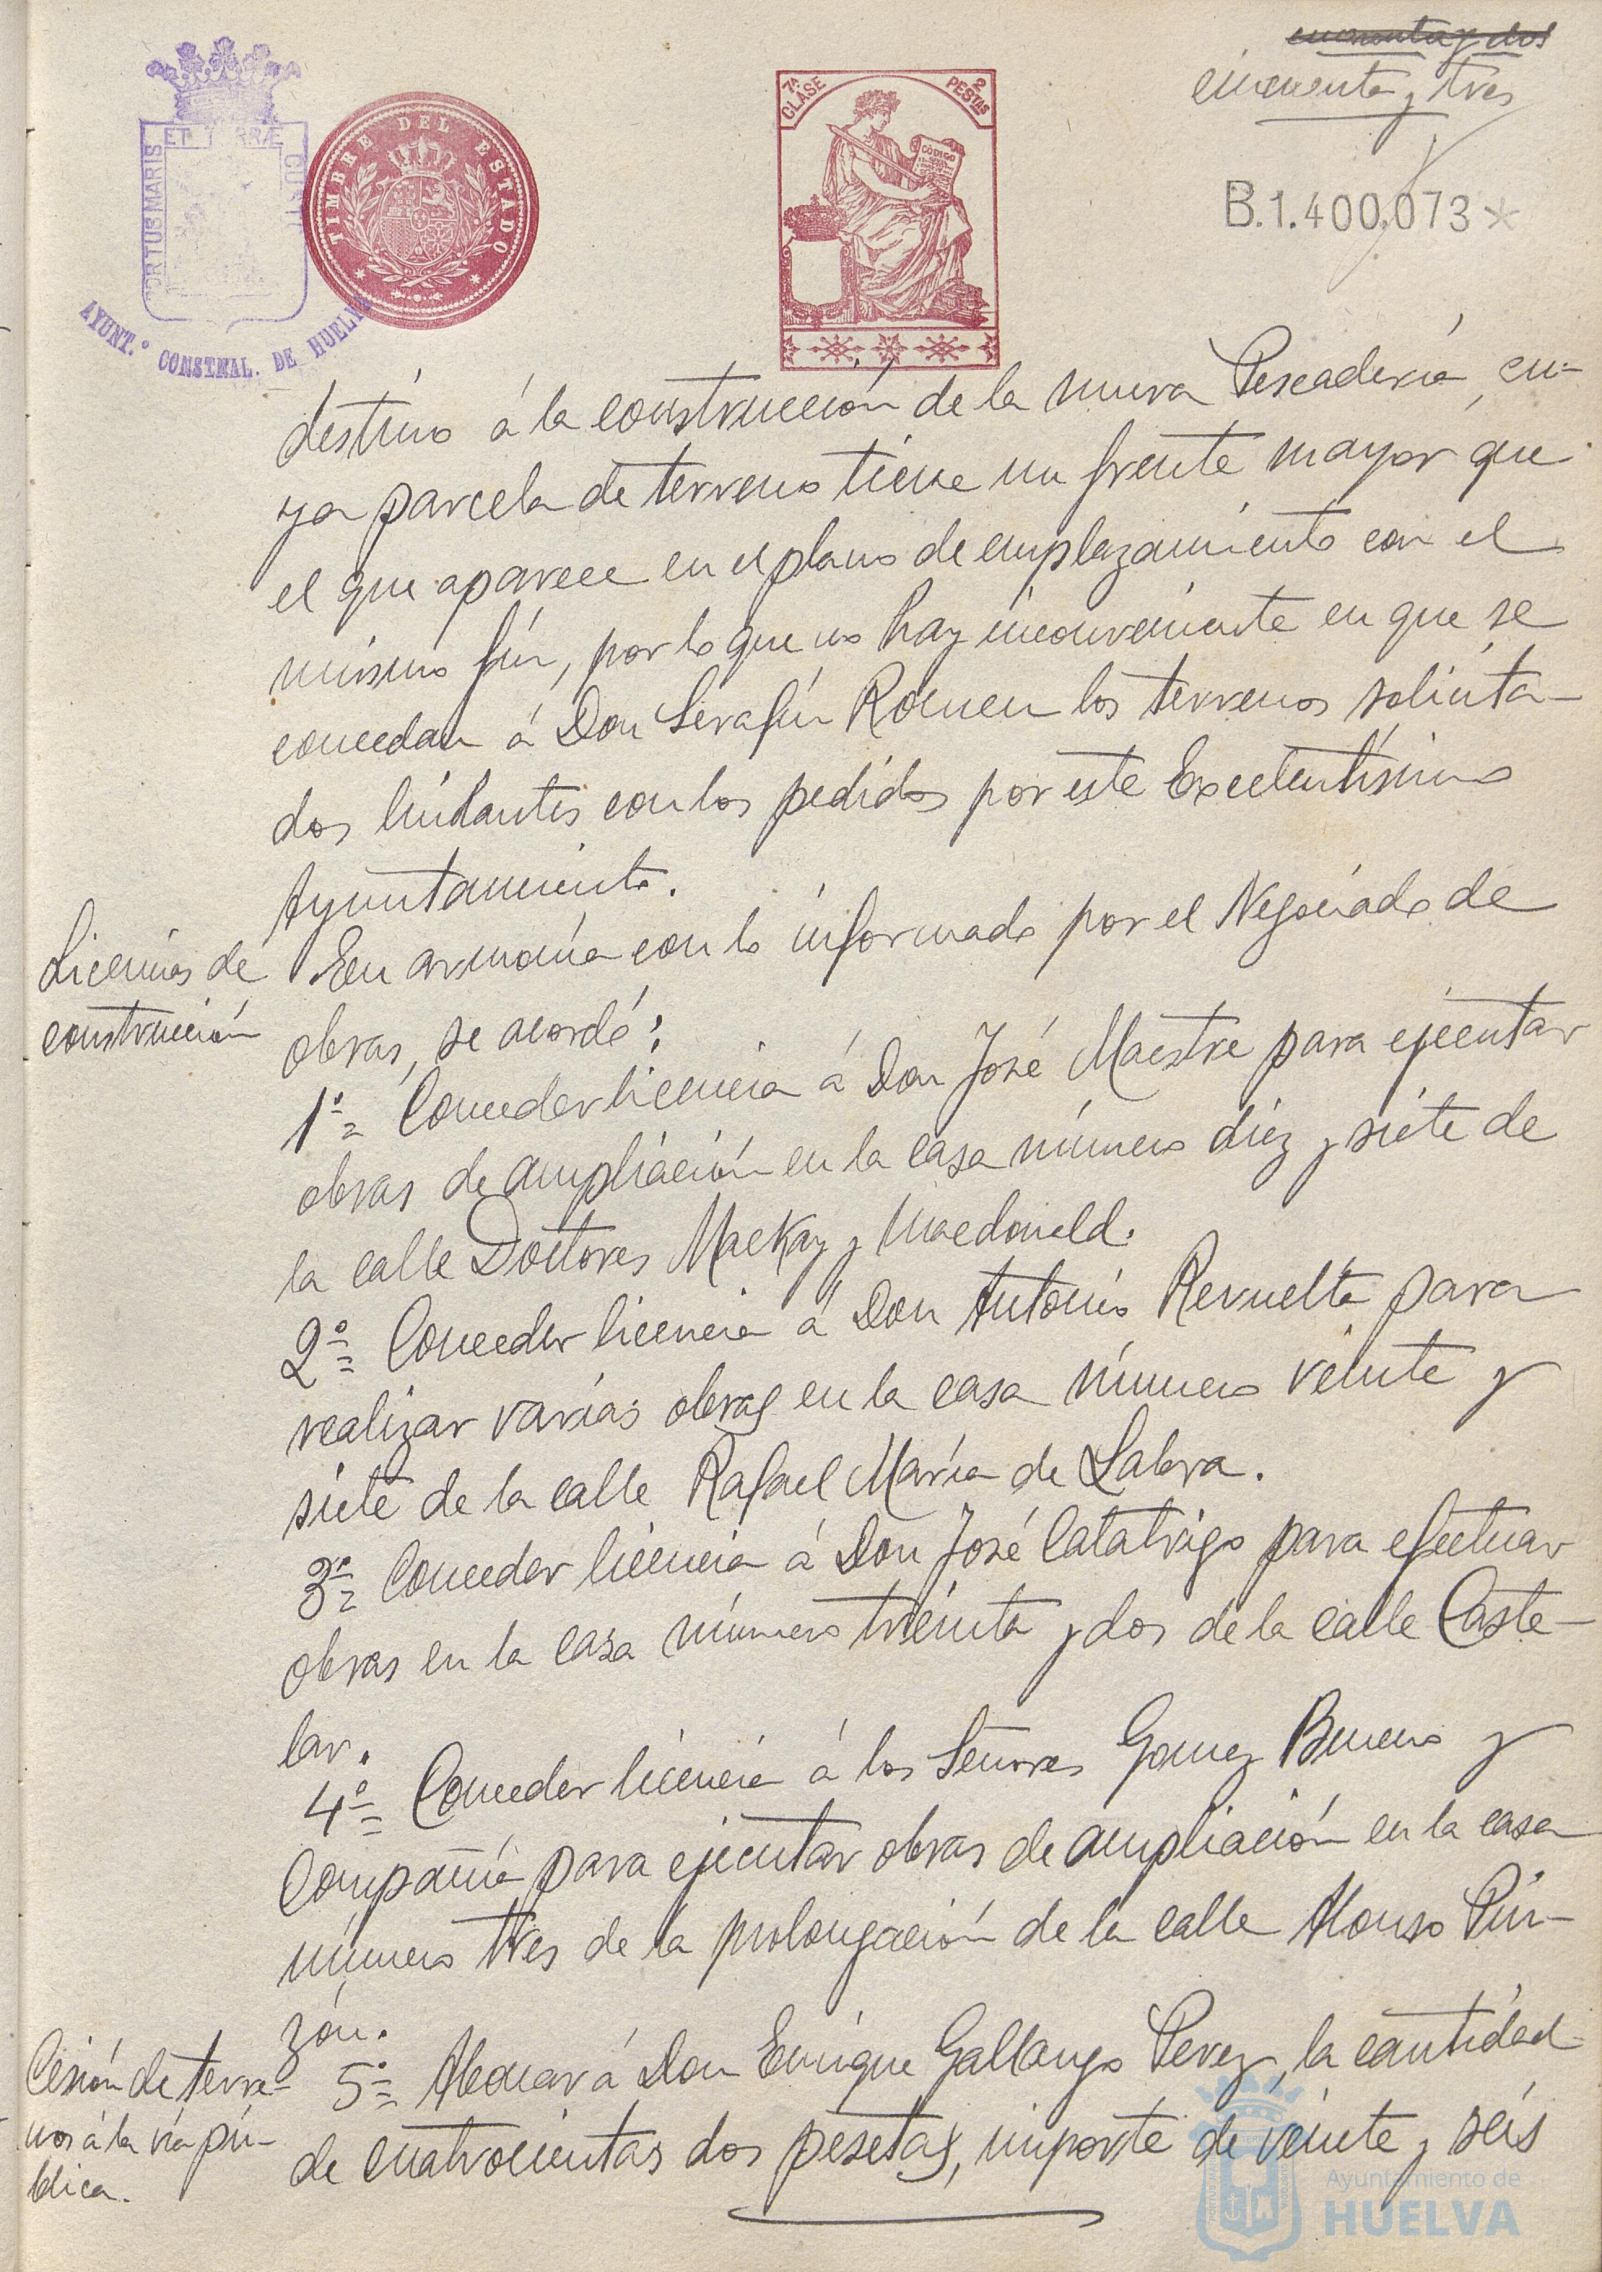 cincuenta y dos
cincuenta y tres
B.1.400.073*
7ª CLASE
2 PESTAS
CÓDIGO
TIMBRE DEL ESTADO
PORTUS MARIS ET TERRÆ
AYUNT.º CONSTNAL. DE HUELVA
destino á la construcción de la nueva Pescadería, cu-
ya parcela de terreno tiene un frente mayor que
el que aparece en el plano de emplazamiento con el
mismo fin, por lo que no hay inconveniente en que se
concedan á Don Serafín Romeu los terrenos solicita-
dos lindantes con los pedidos por este Excelentísimo
Ayuntamiento.
Licencias de
construcción
En armonía con lo informado por el Negociado de
obras, se acordó:
1º= Conceder licencia á Don José Maestre para ejecutar
obras de ampliación en la casa número diez y siete de
la calle Doctores Mackay y Macdonald.
2º= Conceder licencia á Don Antonio Revuelta para
realizar varias obras en la casa número veinte y
siete de la calle Rafael María de Labra.
3º= Conceder licencia á Don José Catatrigo para efectuar
obras en la casa número treinta y dos de la calle Caste-
lar.
4º= Conceder licencia á los Señores Gomez Bueno y
Compañía para ejecutar obras de ampliación en la casa
número tres de la prolongación de la calle Alonso Pin-
zón.
Cesión de terre-
nos á la vía pú-
blica.
5º= Abonar á Don Enrique Gallango Perez, la cantidad
de cuatrocientas dos pesetas, importe de veinte y seis
Ayuntamiento de
HUELVA